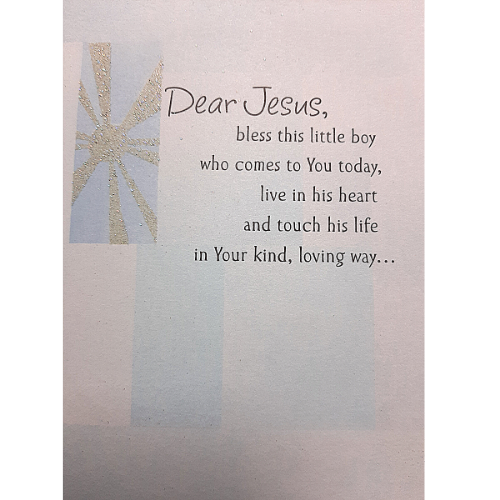 Dear Jesus,
bless this little boy
who comes to You today,
live in his heart
and touch his life
in Your kind, loving way...